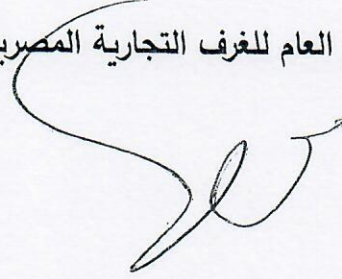 العام للغرف التجارية المصري